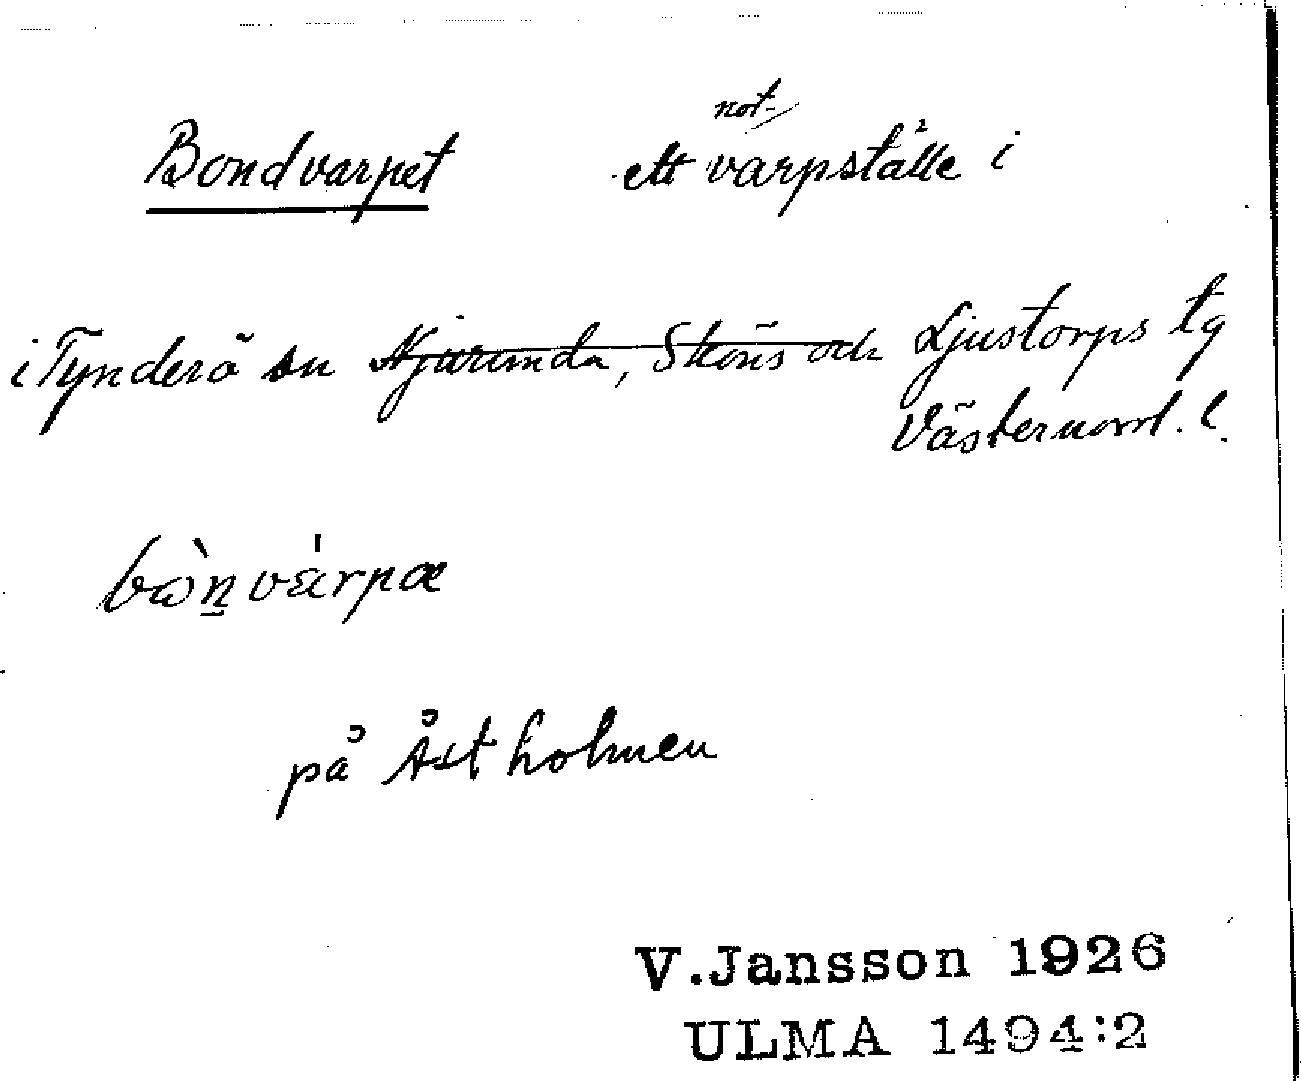 Bondvarpet ett not-varpställe i
i Tynderö sn Njurunda, Sköns och Ljustorps tg
Västernorrl. l.
bὼn̠vɛ́rpæ
på Åstholmen
V.Jansson 1926
ULMA 1494:2